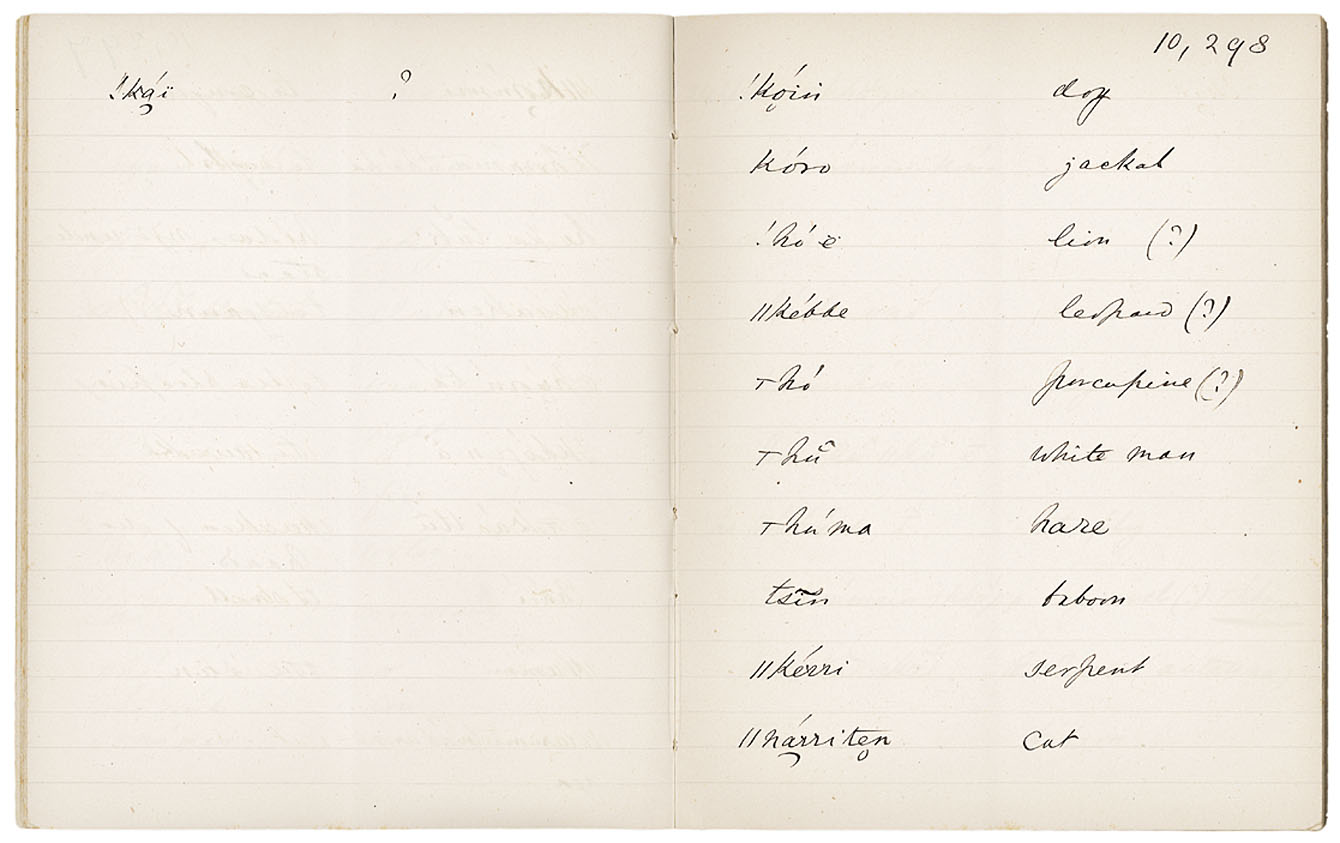 !kạ́ï ?
10,298
!kọ́in dog
kóro jackal
!hó ë lion (?)
||kébbe leopard (?)
Thó porcupine (?)
Thû white man
Thúma hare
tsĩn baboon
||kérri serpent
||hạ́rritẹn cat